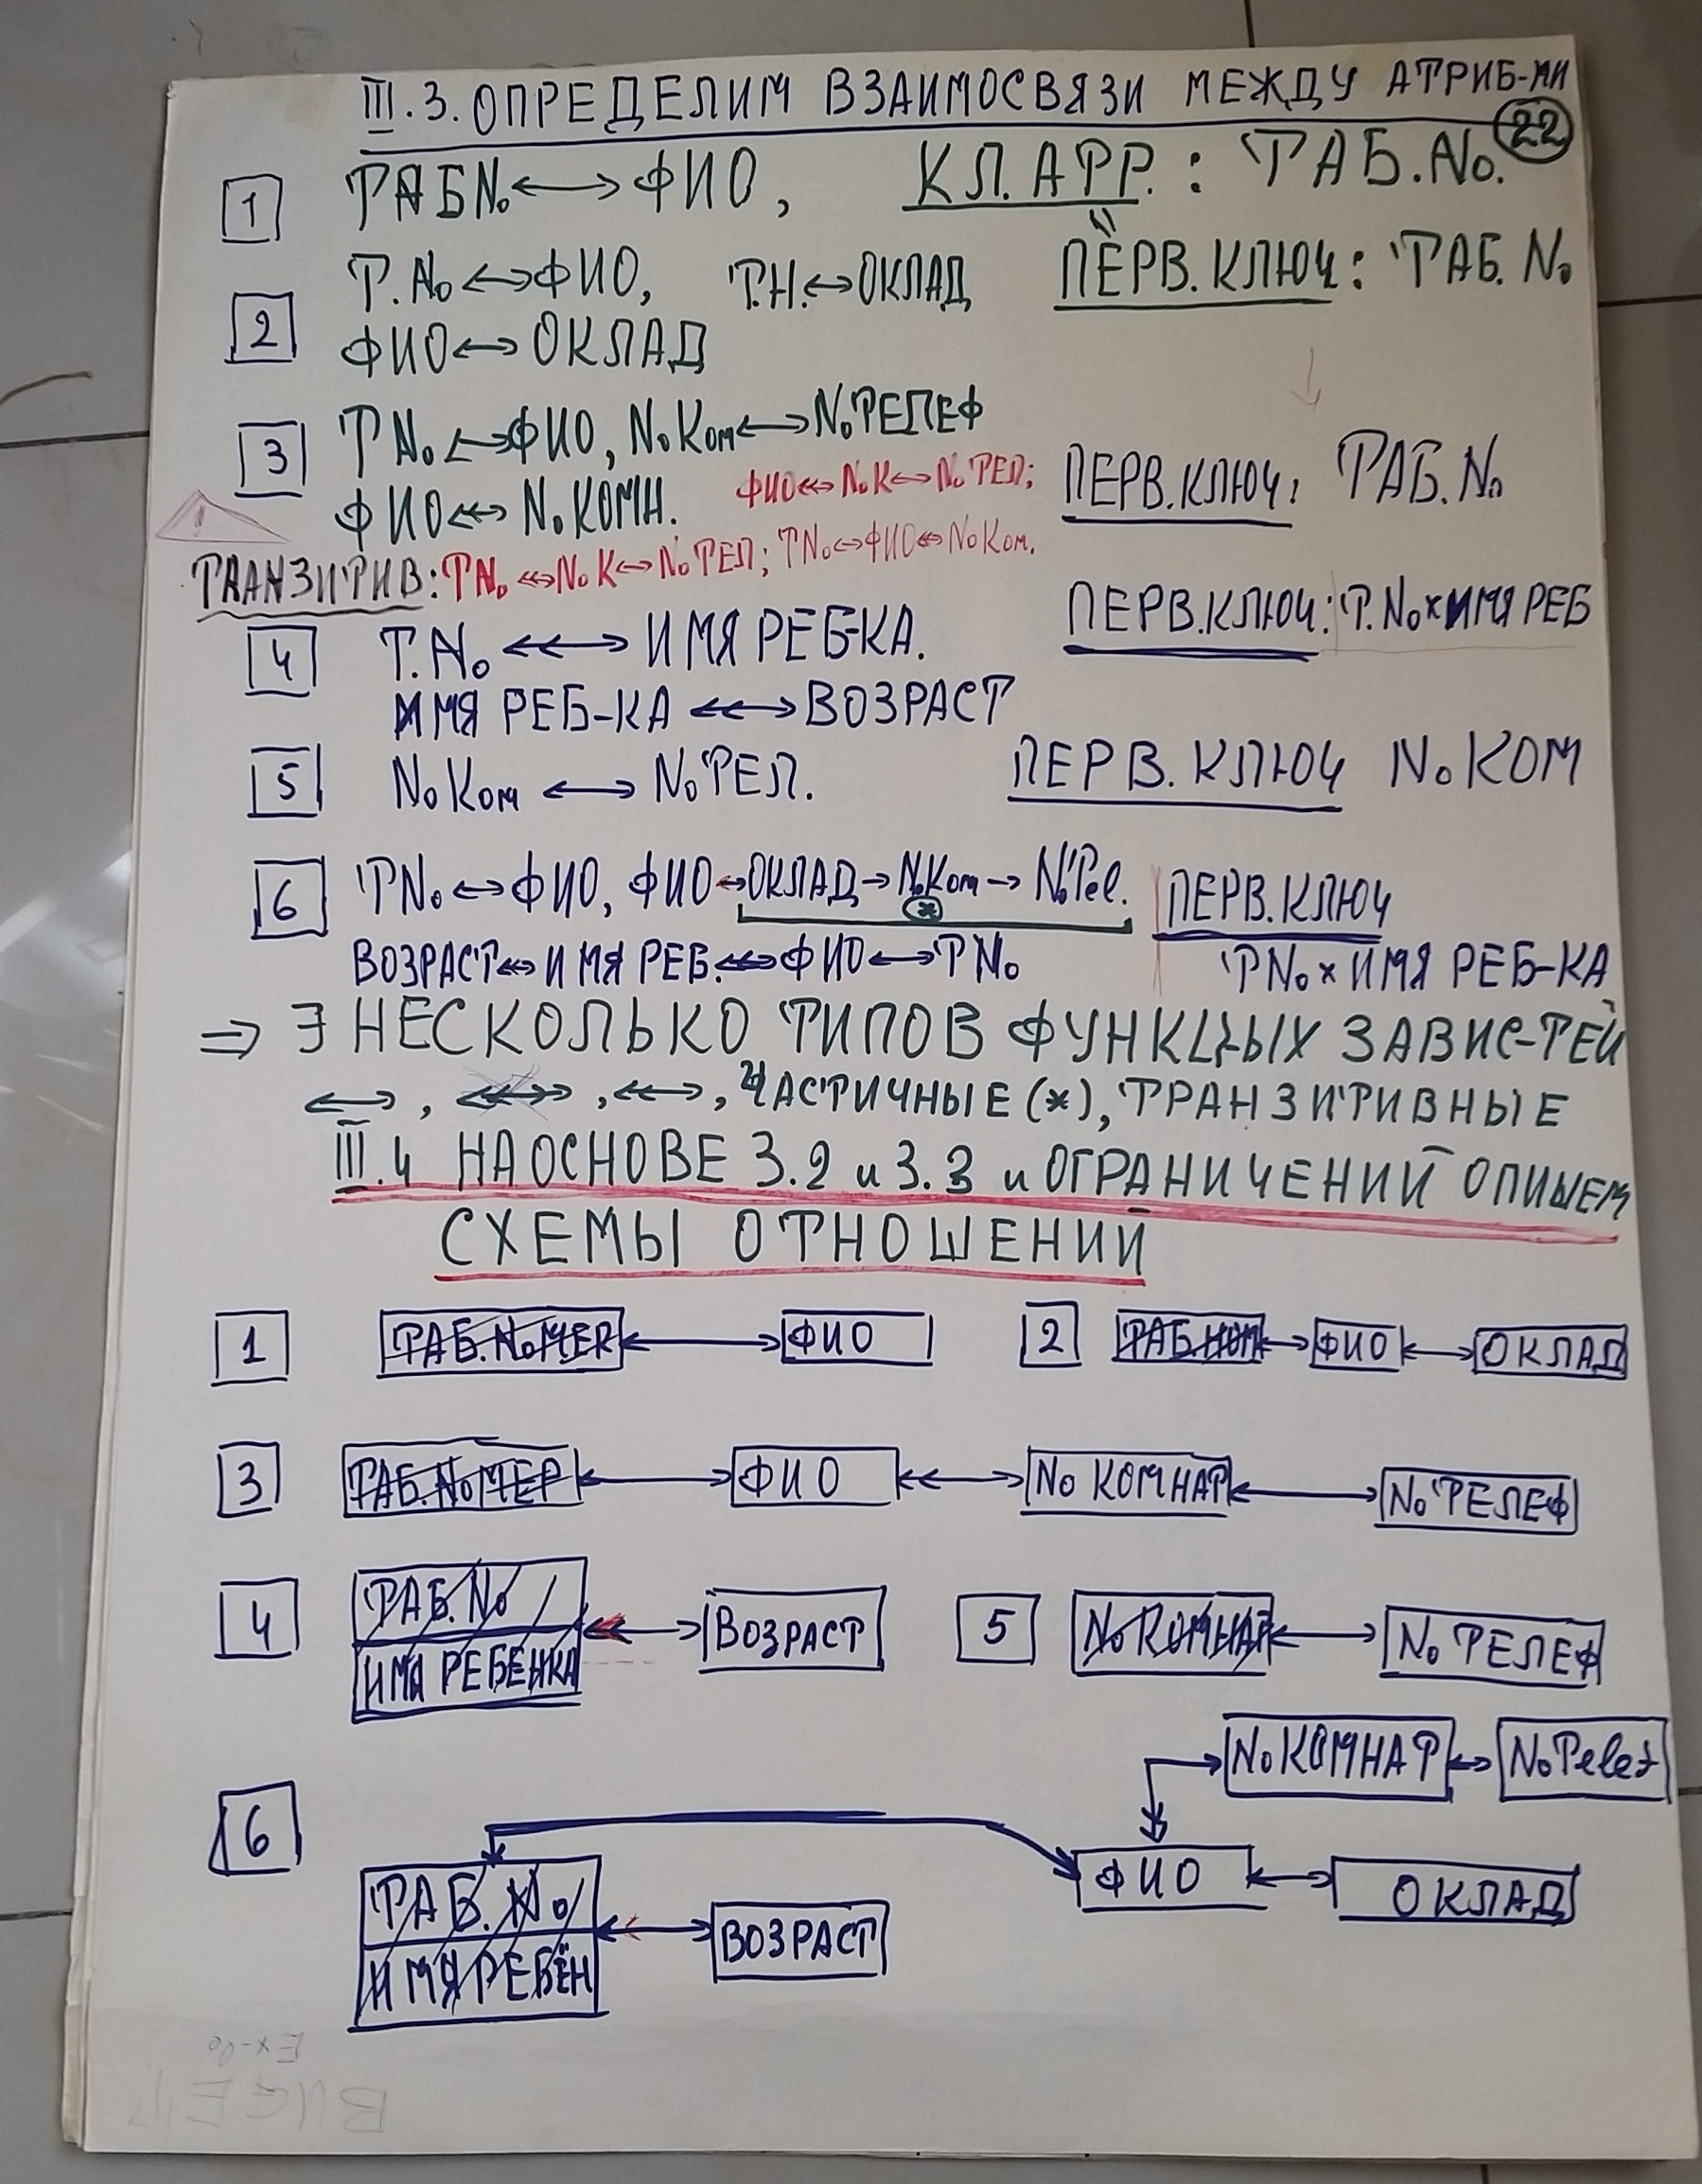 III.3. ОПРЕДЕЛИМ ВЗАИМОСВЯЗИ МЕЖДУ АТРИБ-МИ
22
1 ТАБ№ ⟷ ФИО, КЛ. АТР.: ТАБ.№.
2 Т.№ ↔ ФИО, Т.Н. ↔ ОКЛАД ПЕРВ.КЛЮЧ: ТАБ. №
ФИО ↔ ОКЛАД
3 Т№ ↔ ФИО, №Ком ↔ №ТЕЛЕФ
ФИО ↞→ №КОМН. ФИО ↔ №К ↔ №ТЕЛ; ПЕРВ.КЛЮЧ: ТАБ.№
ТРАНЗИТИВ: Т№ ↞→ №К ↔ №ТЕЛ; Т№ ↔ ФИО ↞→ №Ком.
4 Т.№ ↞→ ИМЯ РЕБ-КА. ПЕРВ.КЛЮЧ: Т.№×ИМЯ РЕБ
ИМЯ РЕБ-КА ↞→ ВОЗРАСТ
5 №Ком ⟷ №ТЕЛ. ПЕРВ. КЛЮЧ №КОМ
6 Т№ ↔ ФИО, ФИО ↔ ОКЛАД → №Ком → №Tel. ПЕРВ.КЛЮЧ
(*)
ВОЗРАСТ ↔ ИМЯ РЕБ. ↞→ ФИО ↔ Т№ Т№ × ИМЯ РЕБ-КА
⇒ ∃ НЕСКОЛЬКО ТИПОВ ФУНКЦ-ЫХ ЗАВИС-ТЕЙ
⟷, ↞→, ЧАСТИЧНЫЕ (*), ТРАНЗИТИВНЫЕ
III.4 НА ОСНОВЕ 3.2 и 3.3 и ОГРАНИЧЕНИЙ ОПИШЕМ
СХЕМЫ ОТНОШЕНИЙ
1 ТАБ.№МЕР ⟷ ФИО 2 ТАБ.НОМ ↔ ФИО ↔ ОКЛАД
3 ТАБ.№МЕР ⟷ ФИО ↞→ № КОМНАТ ⟷ №ТЕЛЕФ
4 ТАБ.№ ↞→ ВОЗРАСТ 5 №КОМНАТ ⟷ №ТЕЛЕФ
ИМЯ РЕБЕНКА
№КОМНАТ ↔ №Telef
6 ФИО ↔ ОКЛАД
ТАБ.№ ⟷ ВОЗРАСТ
ИМЯ РЕБЁН